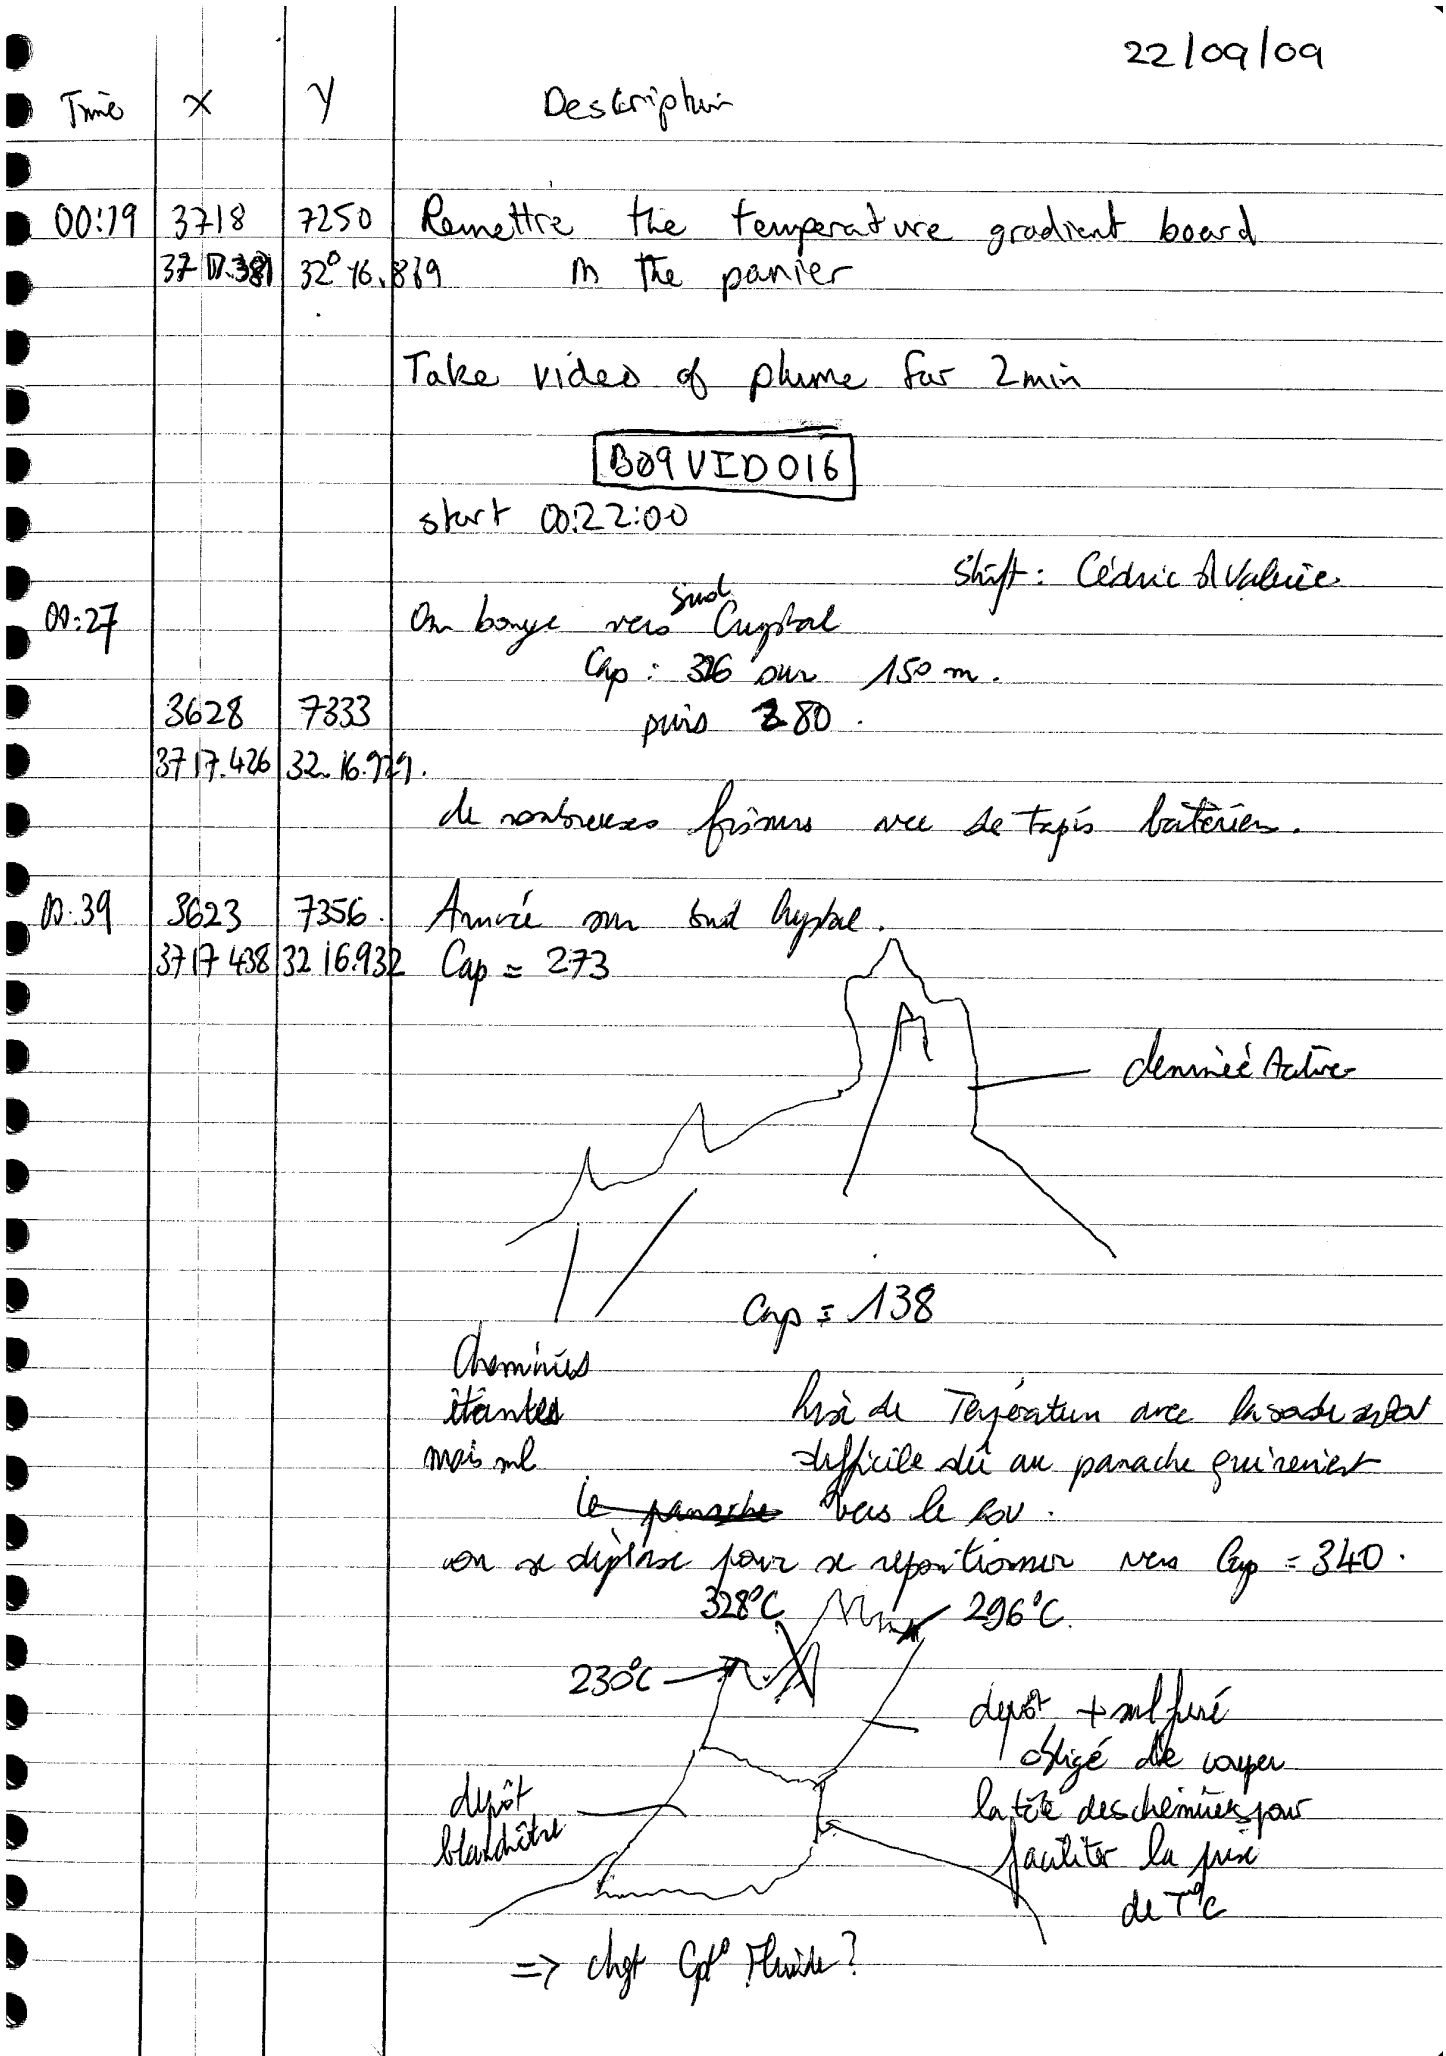 22/09/09
Time X Y Description
00:19 3718 7250 Remettre the temperature gradient board
37 17.381 32° 16.869 in the panier
Take video of plume for 2min
B09VID016
start 00:22:00
Shift: Cédric & Valérie
00:27 On bouge vers sud Crystal
Cap: 326 sur 150 m.
3628 7333 puis 280.
3717.426 32.16.929.
de nombreuses fissures avec de tapis batérien.
00:39 3623 7356. Arrivée sur Sud Crystal.
3717 438 32 16.932 Cap = 273
cheminée Active
Cap = 138
Cheminées
étantes
mais
Prise de Température avec la sonde
difficile dû au panache qui revient
le panache vers le ROV.
on se déplace pour se repositionner vers Cap = 340.
328°C 296°C.
230°C
dépôt + sulfuré
obligé de couper
la tête des cheminées pour
faciliter la prise
de T°C
dépôt
blanchâtre
=> chgt Cpt° Fluide?